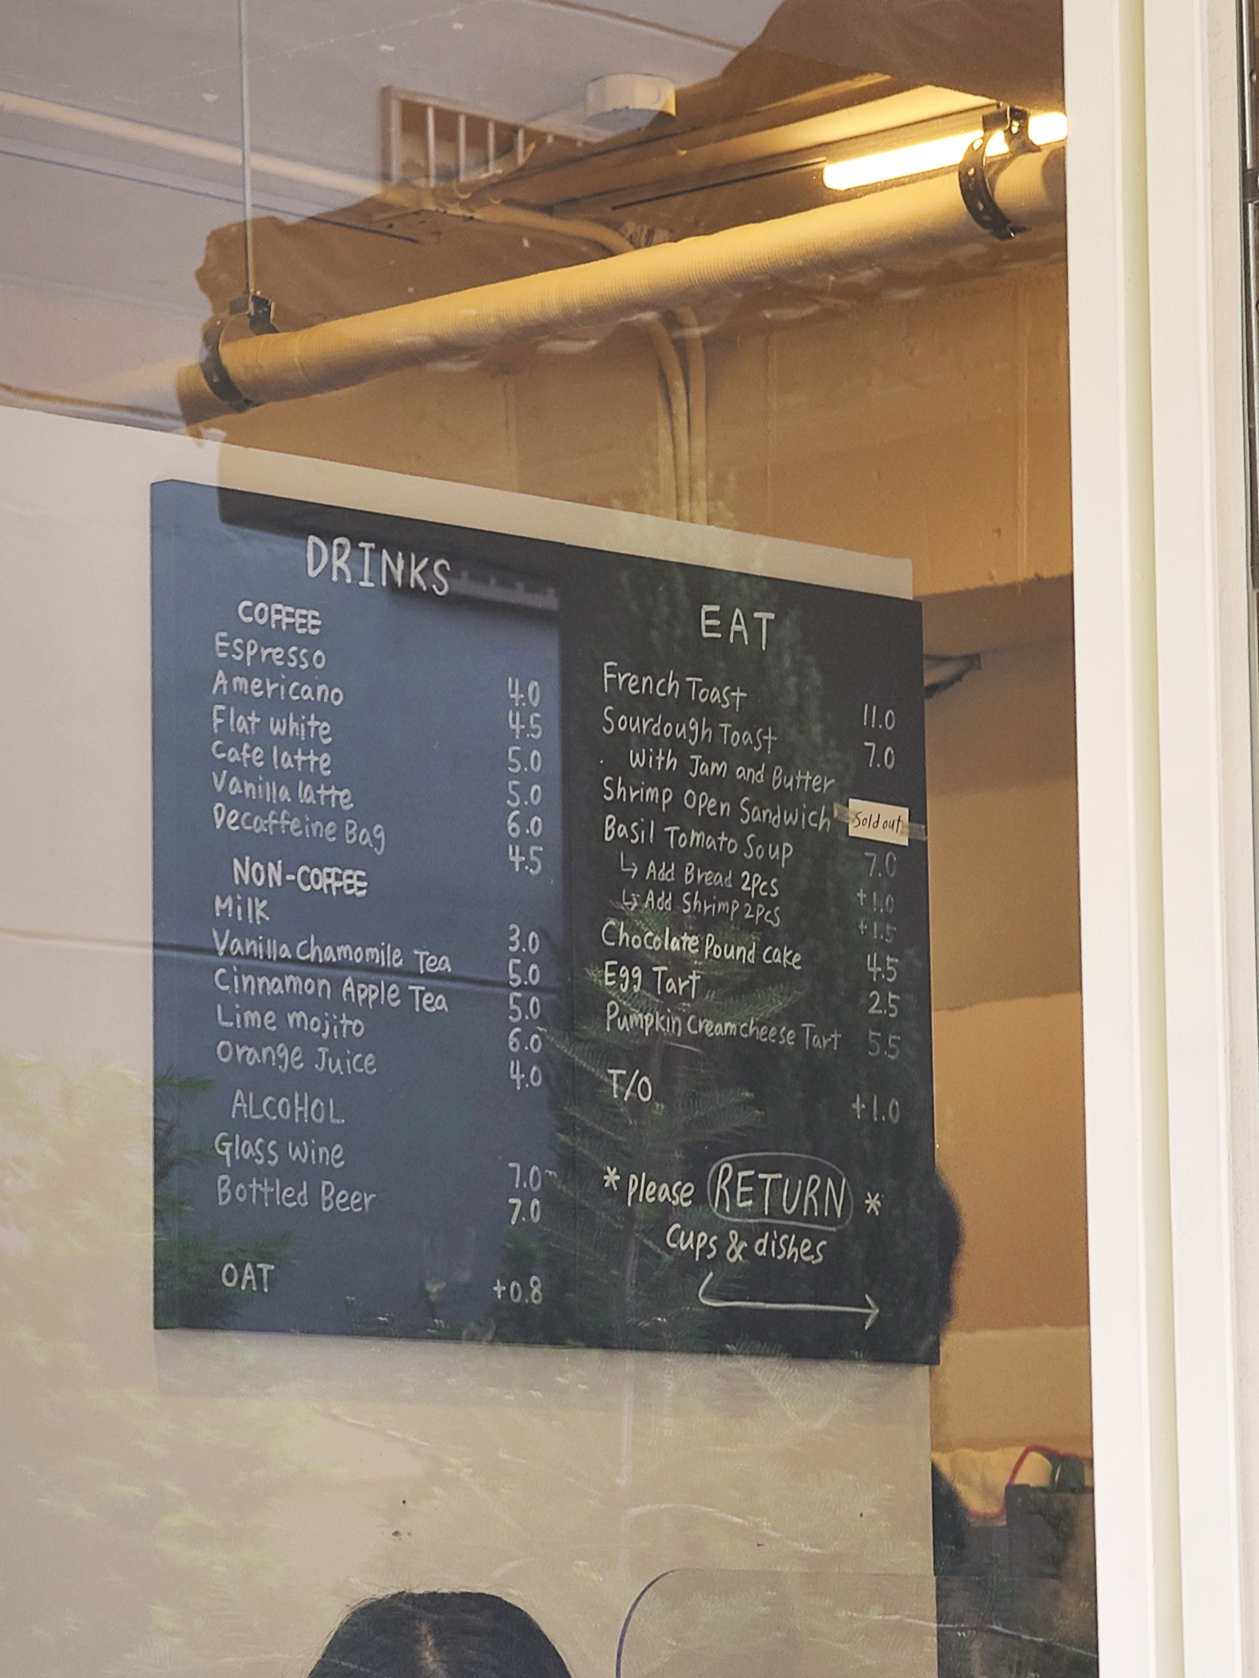 DRINKS
COFFEE
Espresso 4.0
Americano 4.5
Flat white 5.0
Cafe latte 5.0
Vanilla latte 6.0
Decaffeine Bag 4.5
NON-COFFEE
Milk 3.0
Vanilla Chamomile Tea 5.0
Cinnamon Apple Tea 5.0
Lime mojito 6.0
Orange Juice 4.0
ALCOHOL
Glass wine 7.0~
Bottled Beer 7.0
OAT +0.8
EAT
French Toast 11.0
Sourdough Toast 7.0
· With Jam and Butter
Shrimp Open Sandwich Sold out
Basil Tomato Soup 7.0
↳ Add Bread 2pcs +1.0
↳ Add Shrimp 2pcs +1.5
Chocolate Pound cake 4.5
Egg Tart 2.5
Pumpkin Creamcheese Tart 5.5
T/O +1.0
*please RETURN *
cups & dishes